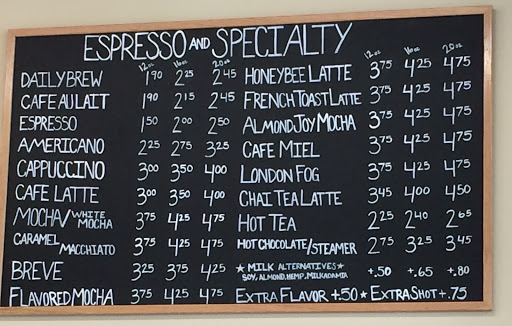 ESPRESSO AND SPECIALTY
12oz 16oz 20oz
DAILY BREW 1.90 2.25 2.45
CAFE AU LAIT 1.90 2.15 2.45
ESPRESSO 1.50 2.00 2.50
AMERICANO 2.25 2.75 3.25
CAPPUCCINO 3.00 3.50 4.00
CAFE LATTE 3.00 3.50 4.00
MOCHA/WHITE MOCHA 3.75 4.25 4.75
CARAMEL MACCHIATO 3.75 4.25 4.75
BREVE 3.25 3.75 4.25
FLAVORED MOCHA 3.75 4.25 4.75
12oz 16oz 20oz
HONEYBEE LATTE 3.75 4.25 4.75
FRENCH TOAST LATTE 3.75 4.25 4.75
ALMOND JOY MOCHA 3.75 4.25 4.75
CAFE MIEL 3.75 4.25 4.75
LONDON FOG 3.75 4.25 4.75
CHAI TEA LATTE 3.45 4.00 4.50
HOT TEA 2.25 2.40 2.65
HOT CHOCOLATE/STEAMER 2.75 3.25 3.45
★ MILK ALTERNATIVES ★ +.50 +.65 +.80
SOY, ALMOND, HEMP, MILKADAMIA
EXTRA FLAVOR +.50 ★ EXTRA SHOT +.75